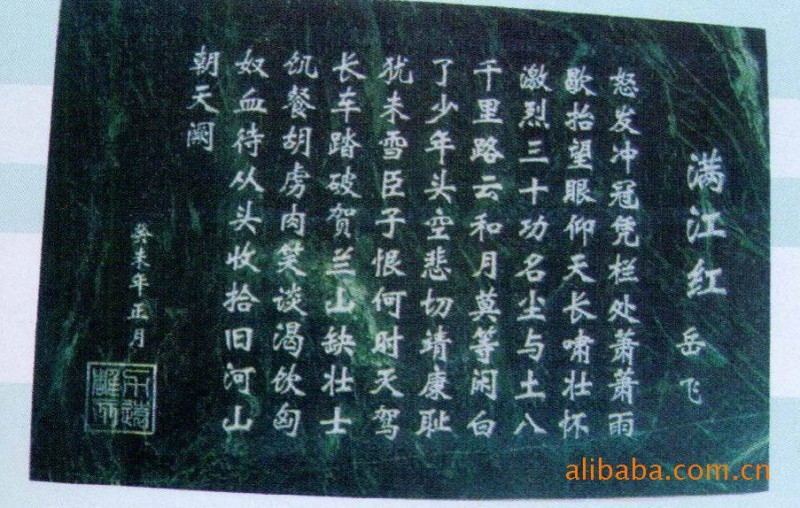 满江红 岳飞
怒发冲冠凭栏处萧萧雨
歇抬望眼仰天长啸壮怀
激烈三十功名尘与土八
千里路云和月莫等闲白
了少年头空悲切靖康耻
犹未雪臣子恨何时灭驾
长车踏破贺兰山缺壮士
饥餐胡虏肉笑谈渴饮匈
奴血待从头收拾旧河山
朝天阙
癸未年正月
alibaba.com.cn